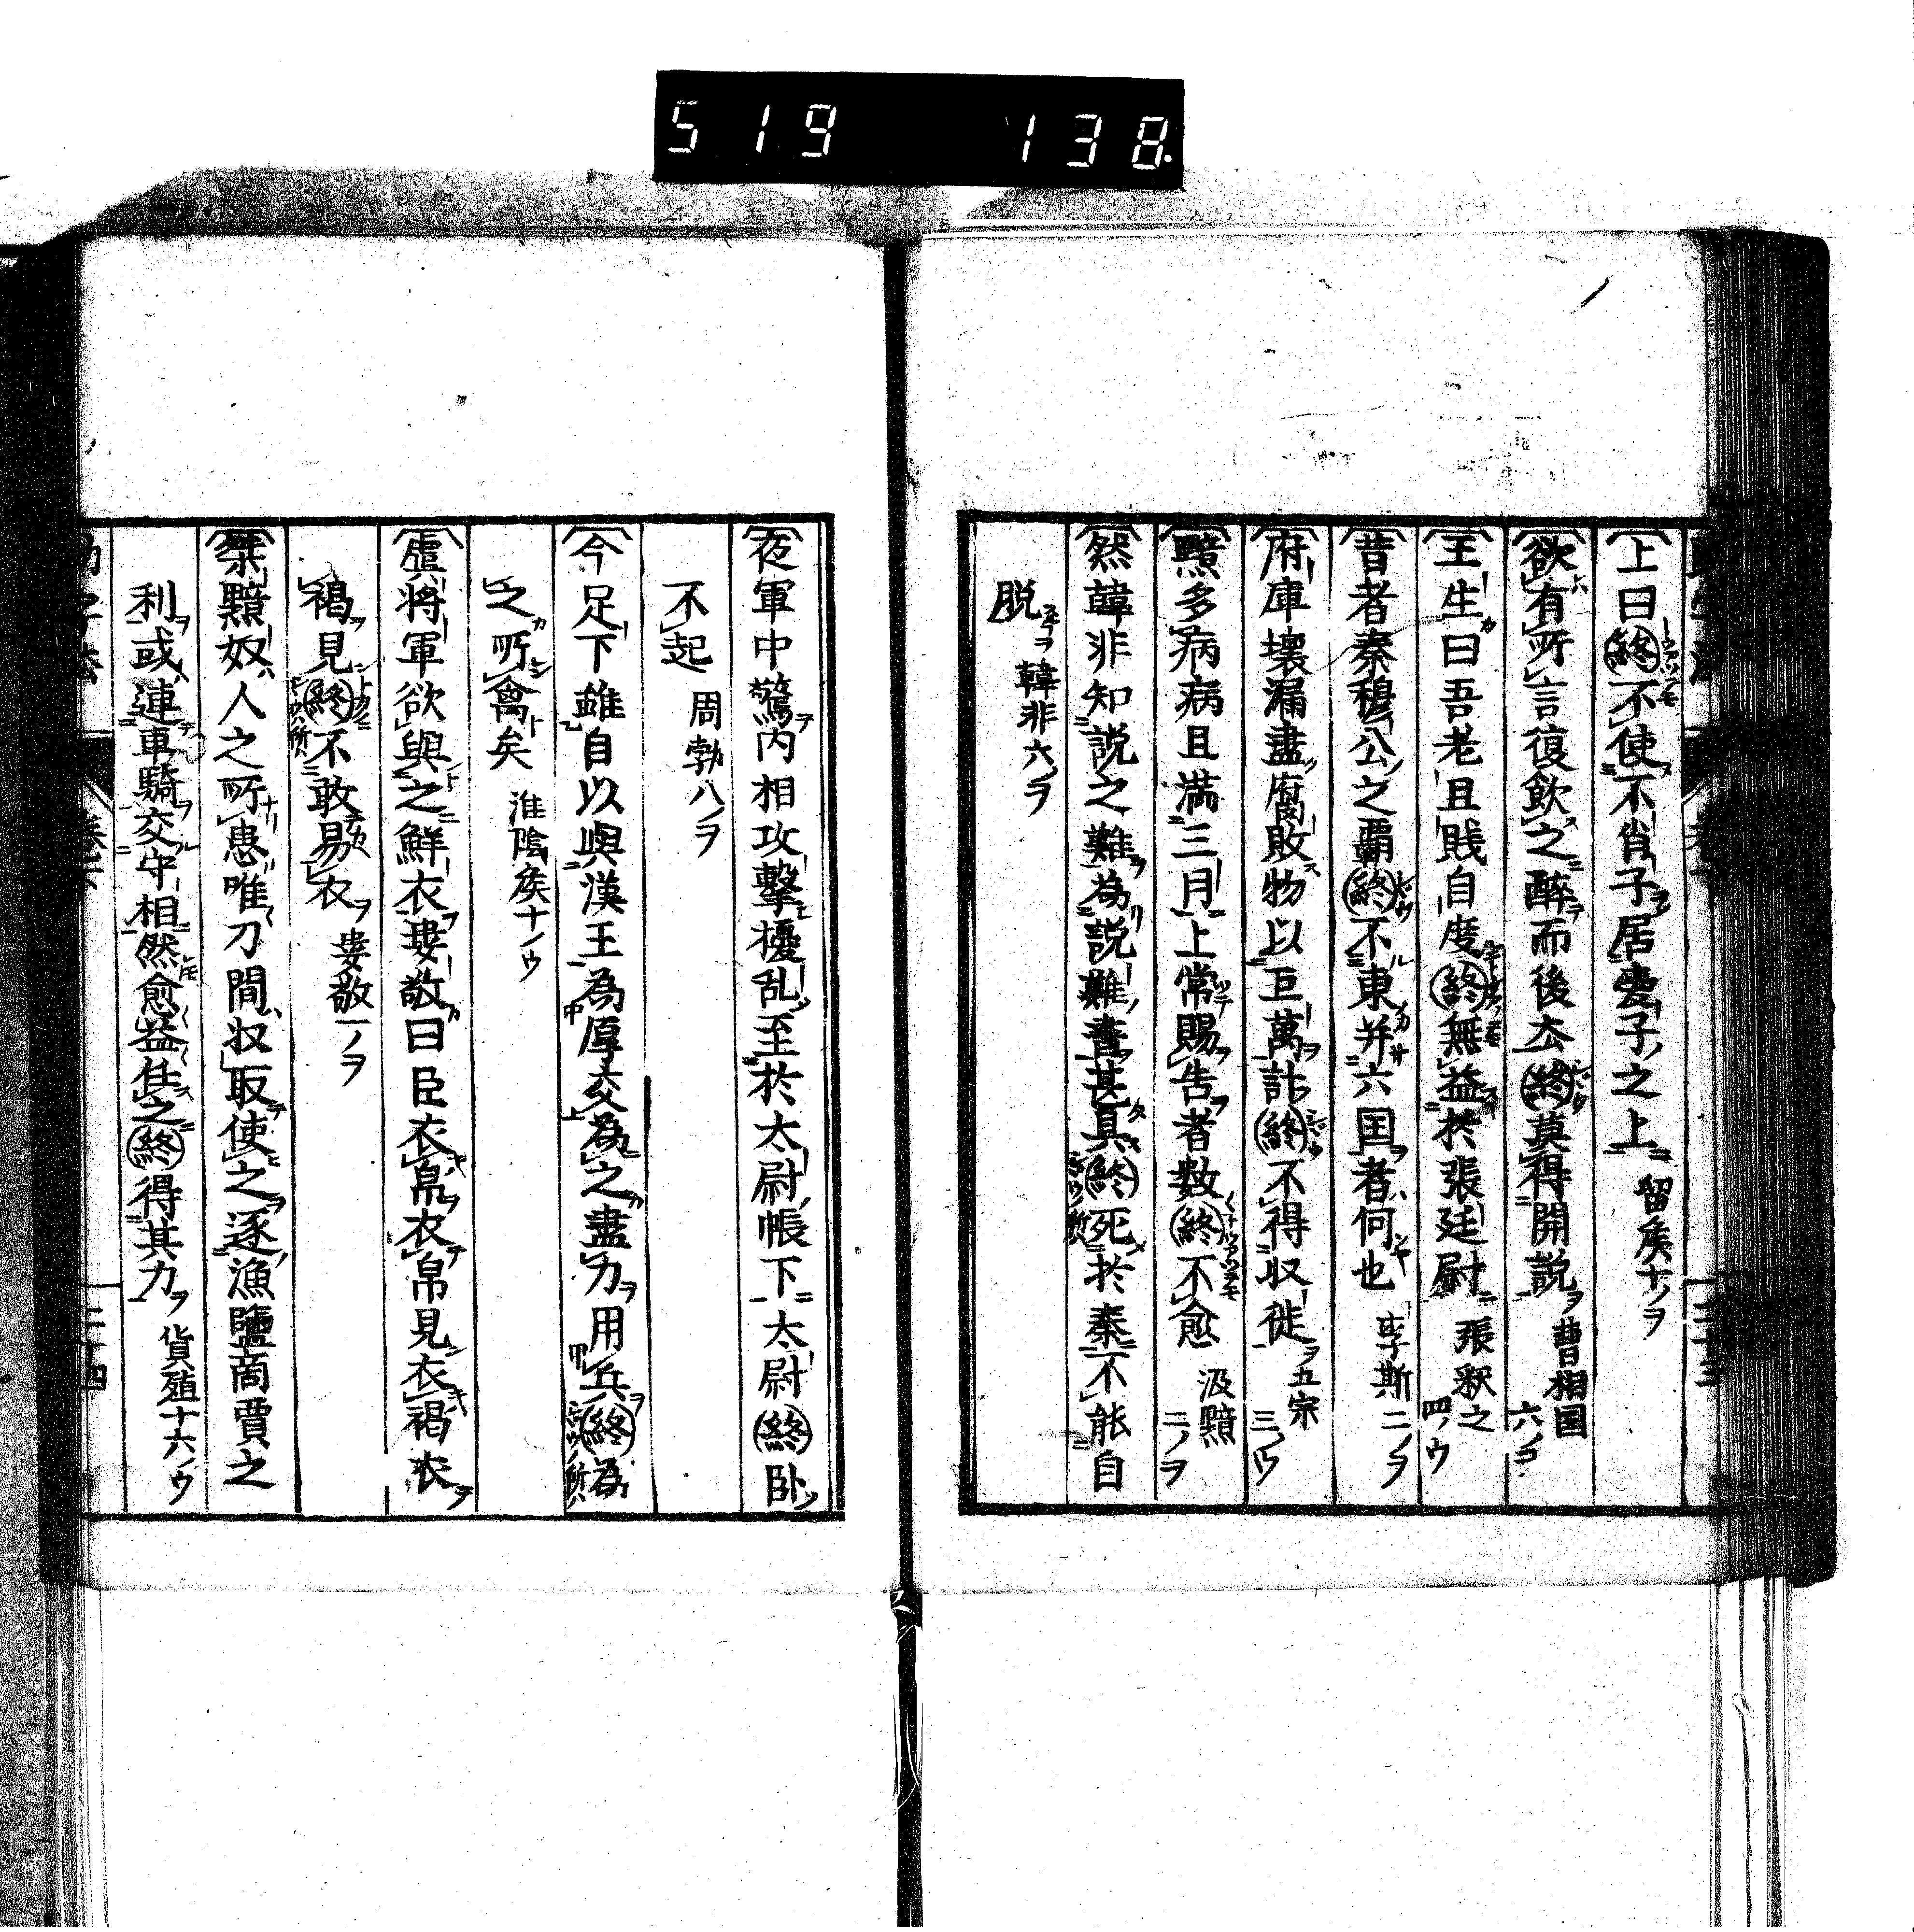 519 138
上曰終不使不肖子居愛子之上 留矦十ノヲ
欲有所言復飲之醉而後去終莫得開説 曹相国六ノヲ
王生曰吾老且賎自度終無益於張廷尉 張釈之四ノウ
昔者秦穆公之覇終不東并六国者何也 李斯二ノヲ
府庫壊漏盡腐敗物以巨萬計終不得収徙 五宗三ノウ
黯多病病且満三月上常賜告者数終不愈 汲黯二ノヲ
然韓非知説之難為説難書甚具終死於秦不能自
脱 韓非六ノヲ
夜軍中驚内相攻擊擾乱至於太尉帳下太尉終卧
不起 周勃八ノヲ
今足下雖自以與漢王為厚交為之盡力用兵終為
之所禽矣 淮陰矦十ノウ
虞将軍欲與之鮮衣婁敬曰臣衣帛衣帛見衣褐衣
褐見終不敢易衣 婁敬一ノヲ
桀黠奴人之所患唯刀間収取使之逐漁鹽商賈之
利或連車騎交守相然愈益任之終得其力 貨殖十六ノウ